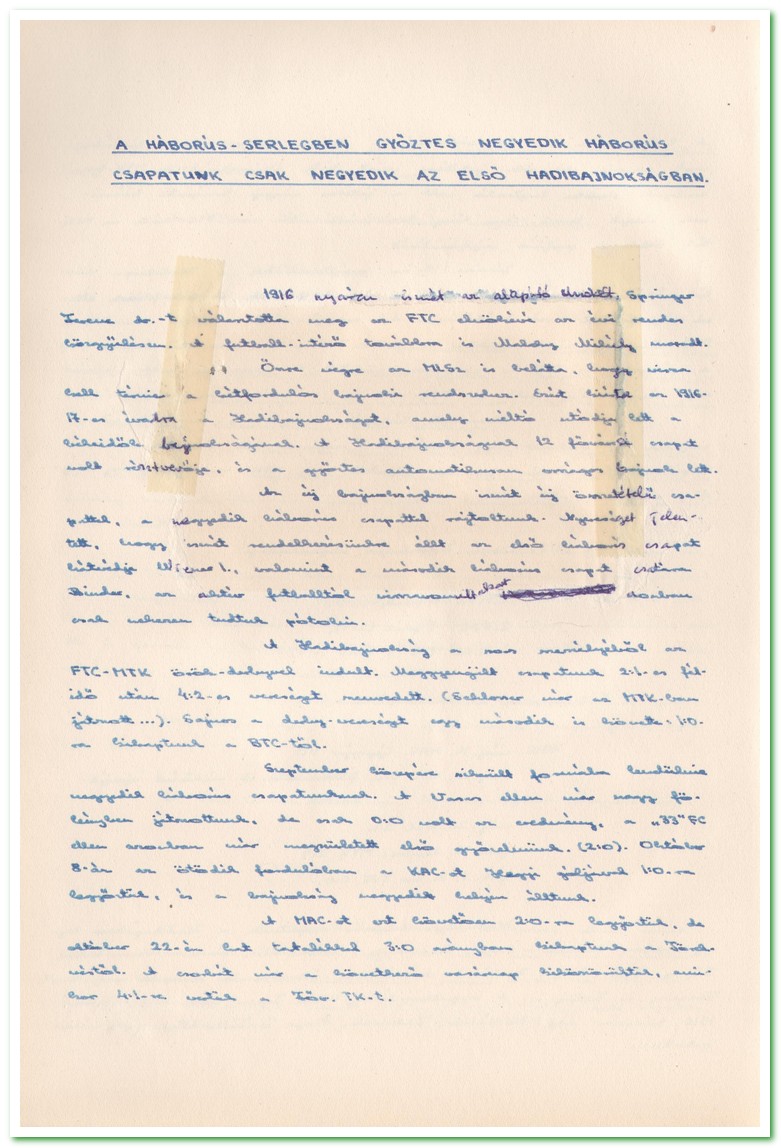 A HÁBORÚS-SERLEGBEN GYŐZTES NEGYEDIK HÁBORÚS
CSAPATUNK CSAK NEGYEDIK AZ ELSŐ HADIBAJNOKSÁGBAN.
1916 nyarán ismét az alapító elnökét, Springer
Ferenc dr.-t választotta meg az FTC elnökévé az évi rendes
közgyűlésen. A futball-intéző továbbra is Malaky Mihály maradt.
Őszre végre az MLSz is belátta, hogy vissza
kell térnie a kétfordulós bajnoki rendszerhez. Ezért kiírta az 1916-
17-es évadra a Hadibajnokságot, amely méltó utódja lett a
békeidők bajnokságainak. A Hadibajnokságnak 12 fővárosi csapat
volt résztvevője, és a győztes automatikusan országos bajnok lett.
Az új bajnokságban ismét új összetételű csa-
pattal, a negyedik háborús csapattal rajtoltunk. Nyereséget jelen-
tett, hogy ismét rendelkezésünkre állt az első háborús csapat
hátvédje Wiener I., valamint a második háborús csapat csatára
Binder, az aktív futballtól visszavonult azonban
csak nehezen tudtuk pótolni.
A Hadibajnokság a sors szeszélyéből az
FTC-MTK örök-derbyvel indult. Meggyengült csapatunk 2:1-es fél-
idő után 4:2-es vereséget szenvedett. (Schlosser már az MTK-ban
játszott...). Sajnos a derby-vereséget egy második is követte: 1:0-
ra kikaptunk a BTC-től.
Szeptember közepére sikerült formába lendülnie
negyedik háborús csapatunknak. A Vasas ellen már nagy fö-
lényben játszottunk, de csak 0:0 volt az eredmény, a „33"FC
ellen azonban már megszületett első győzelmünk. (2:0). Október
8-án az ötödik fordulóban a KAC-ot Nagy góljával 1:0-ra
legyőztük, és a bajnokság negyedik helyén álltunk.
A MAC-ot ezt követően 2:0-ra legyőztük, de
október 22-én hat tartalékkal 3:0 arányban kikaptunk a Törek-
véstől. A csorbát már a következő vasárnap kiköszörültük, ami-
kor 4:1-re vertük a Főv. TK-t.